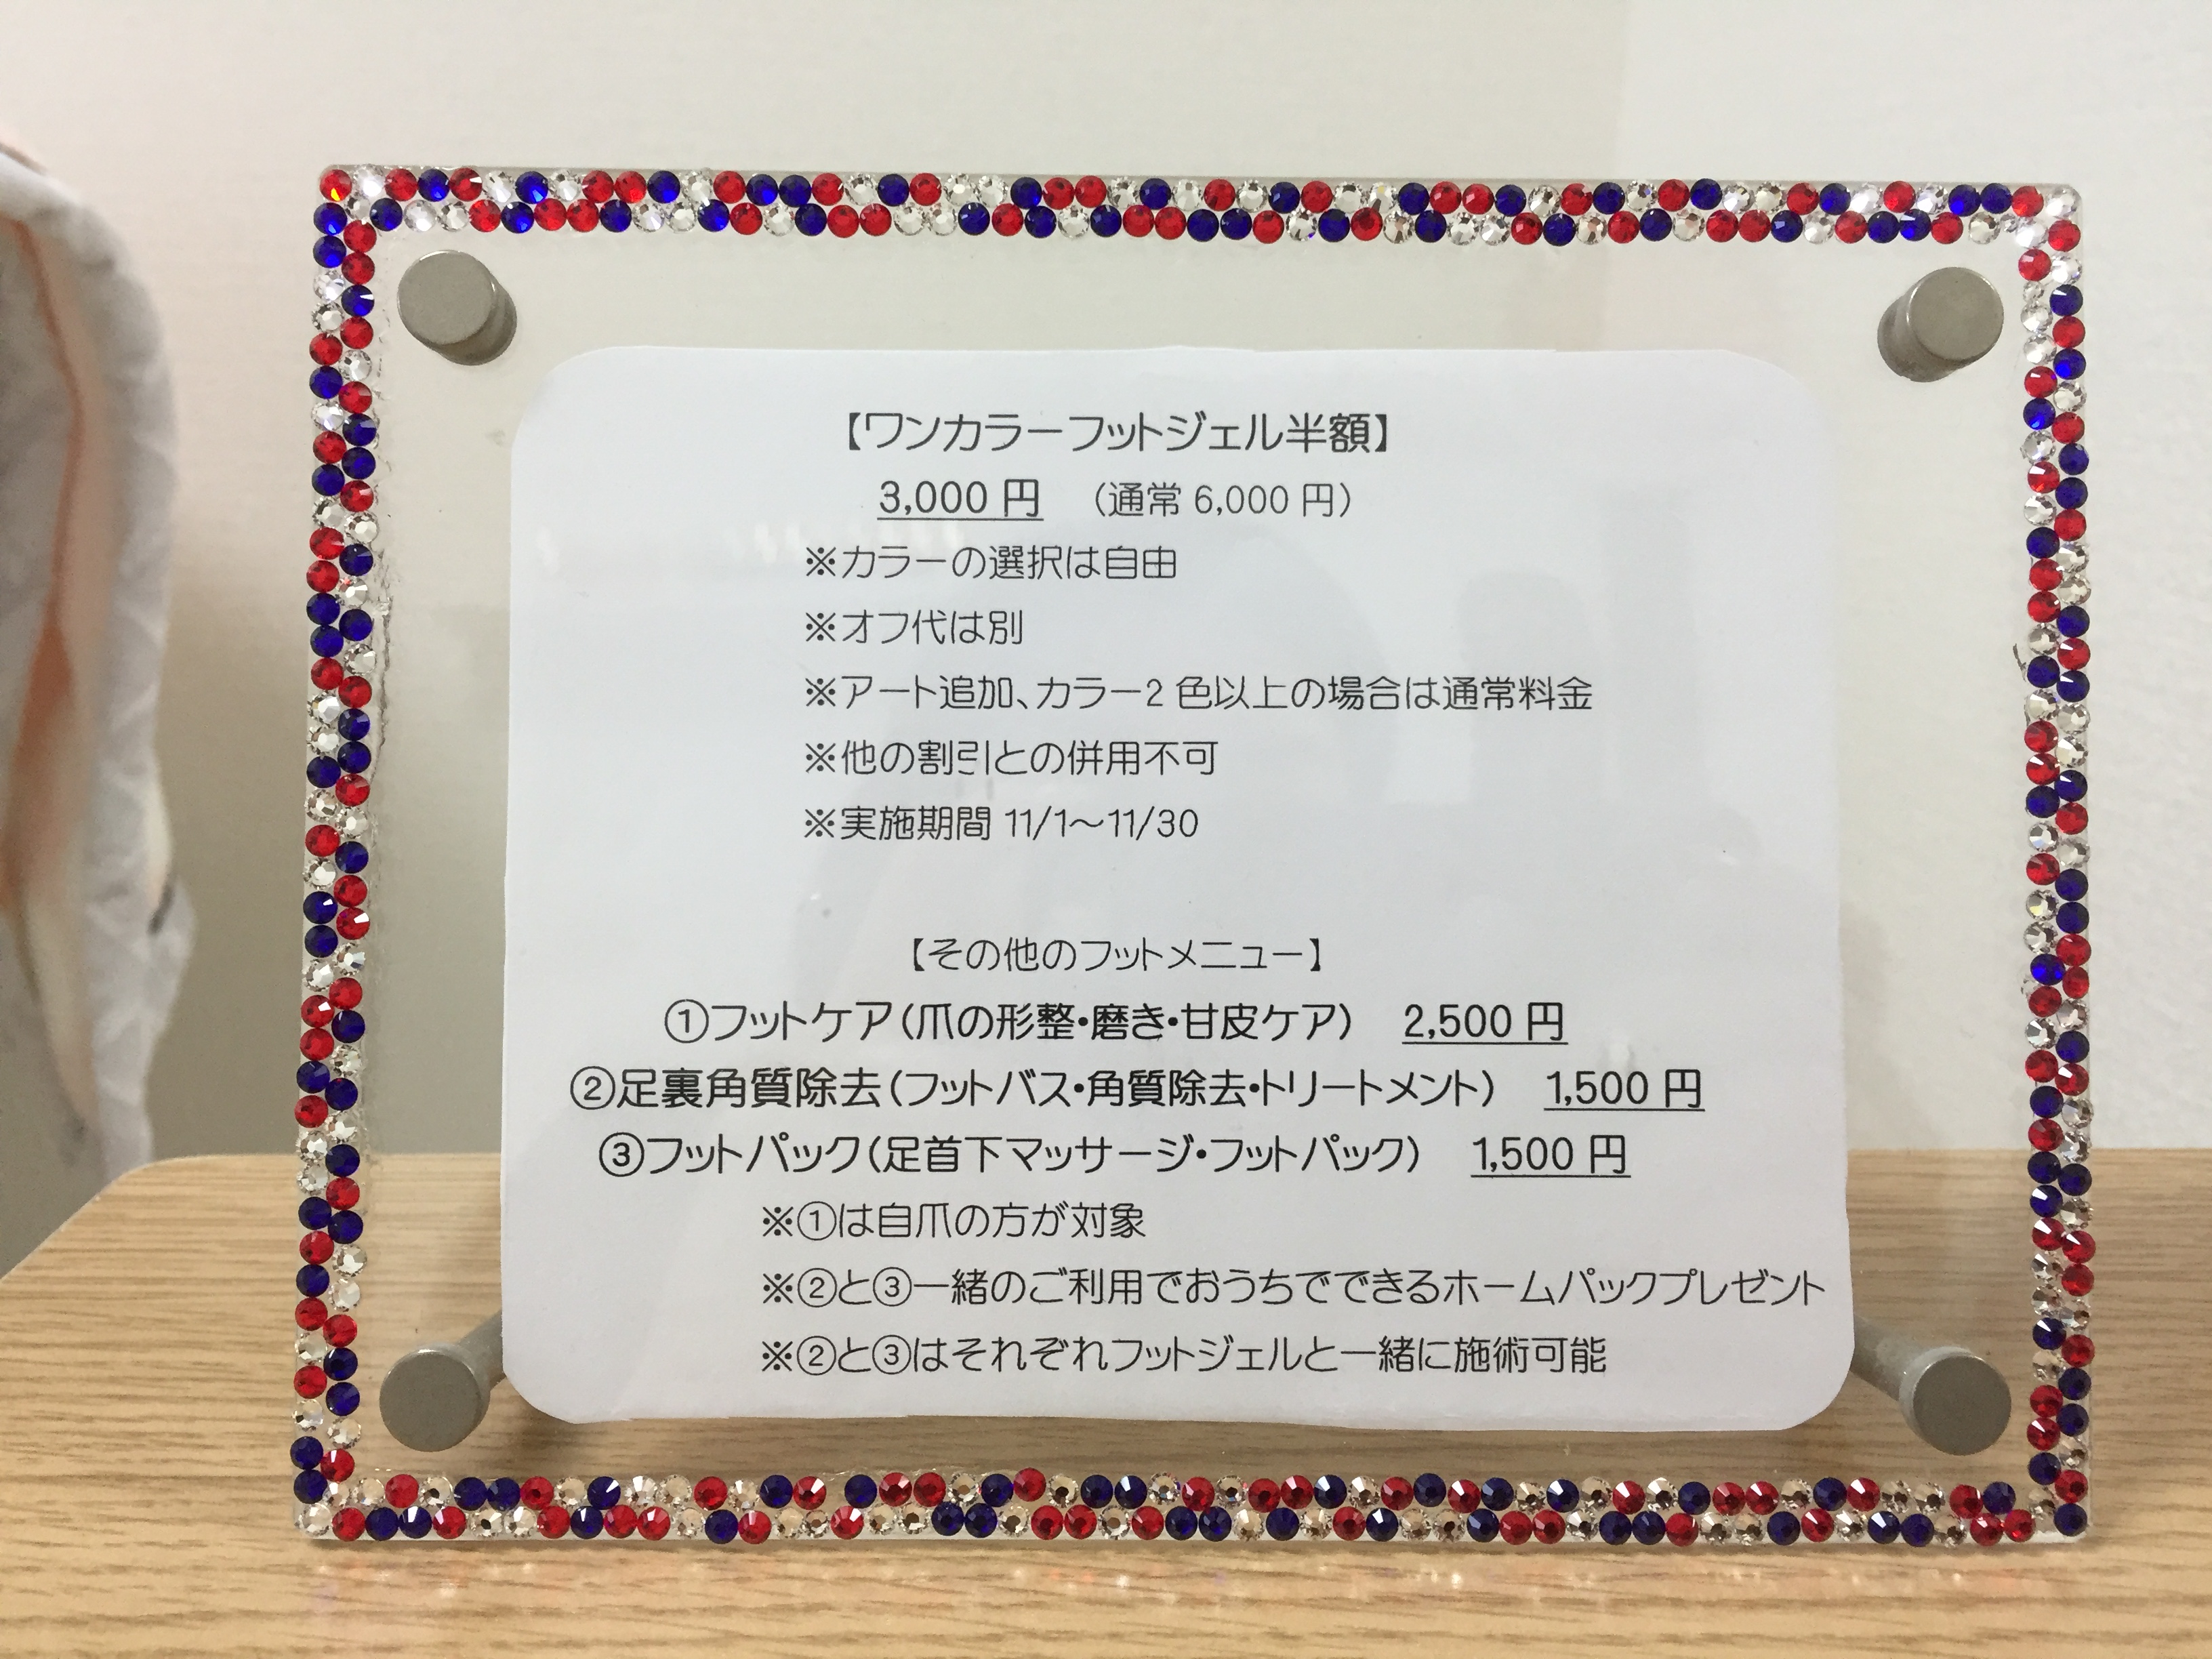 【ワンカラーフットジェル半額】
3,000 円　（通常 6,000 円）
※カラーの選択は自由
※オフ代は別
※アート追加、カラー2 色以上の場合は通常料金
※他の割引との併用不可
※実施期間 11/1～11/30
【その他のフットメニュー】
①フットケア（爪の形整・磨き・甘皮ケア）　2,500 円
②足裏角質除去（フットバス・角質除去・トリートメント）　1,500 円
③フットパック（足首下マッサージ・フットパック）　1,500 円
※①は自爪の方が対象
※②と③一緒のご利用でおうちでできるホームパックプレゼント
※②と③はそれぞれフットジェルと一緒に施術可能